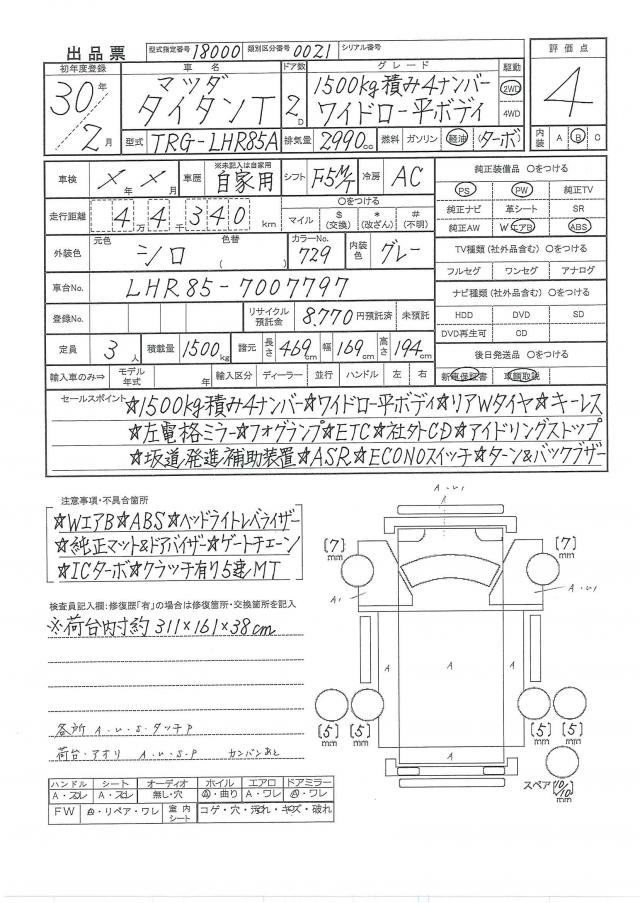 出品票 型式指定番号 18000 類別区分番号 0021 シリアル番号
初年度登録 車名 ドア数 グレード 駆動 評価点
30年 マツダ 1500kg積み4ナンバー 2WD 4
2月 タイタンT 2D ワイドロー平ボディ 4WD
型式 TRG-LHR85A 排気量 2990cc 燃料 ガソリン 軽油 (ターボ) 内装 A B C
車検 X年X月 車歴 ※未記入は自家用 自家用 シフト F5M/T 冷房 AC 純正装備品 ○をつける
PS PW 純正TV
走行距離 4万4千340km ○をつける マイル $(交換) *(改ざん) #(不明) 純正ナビ 革シート SR
純正AW WエアB ABS
外装色 元色 シロ 色替 ( ) カラーNo. 729 内装色 グレー TV種類(社外品含む) ○をつける
フルセグ ワンセグ アナログ
車台No. LHR85-7007797 ナビ種類(社外品含む) ○をつける
登録No. リサイクル預託金 8,770円預託済 未預託 HDD DVD SD
DVD再生可 CD
定員 3人 積載量 1500kg 諸元 長さ 469cm 幅 169cm 高さ 194cm 後日発送品 ○をつける
輸入車のみ⇒ モデル年式 年 輸入区分 ディーラー 並行 ハンドル 左 右 新車保証書 車輌取説
セールスポイント ☆1500kg積み4ナンバー☆ワイドロー平ボディ☆リアWタイヤ☆キーレス
☆左電格ミラー☆フォグランプ☆ETC☆社外CD☆アイドリングストップ
☆坂道発進補助装置☆ASR☆ECONOスイッチ☆ターン&バックブザー
注意事項・不具合箇所
☆WエアB☆ABS☆ヘッドライトレベライザー
☆純正マット&ドアバイザー☆ゲートチェーン
☆ICターボ☆クラッチ有り5速MT
検査員記入欄:修復歴「有」の場合は修復箇所・交換箇所を記入
※荷台内寸約311×161×38cm
各所 A・U・S・タッチP
荷台・アオリ A・U・S・P カンバンあと
ハンドル シート オーディオ ホイル エアロ ドアミラー
A・スレ A・スレ 無し・穴 A・曲り A・ワレ A・ワレ
FW A・リペア・ワレ 室内シート コゲ・穴・汚れ・キズ・破れ
A・U1
[7]mm [7]mm
A1 A・U1
A A A
[5]mm [5]mm [5]mm [5]mm
A
スペア [10/10]mm